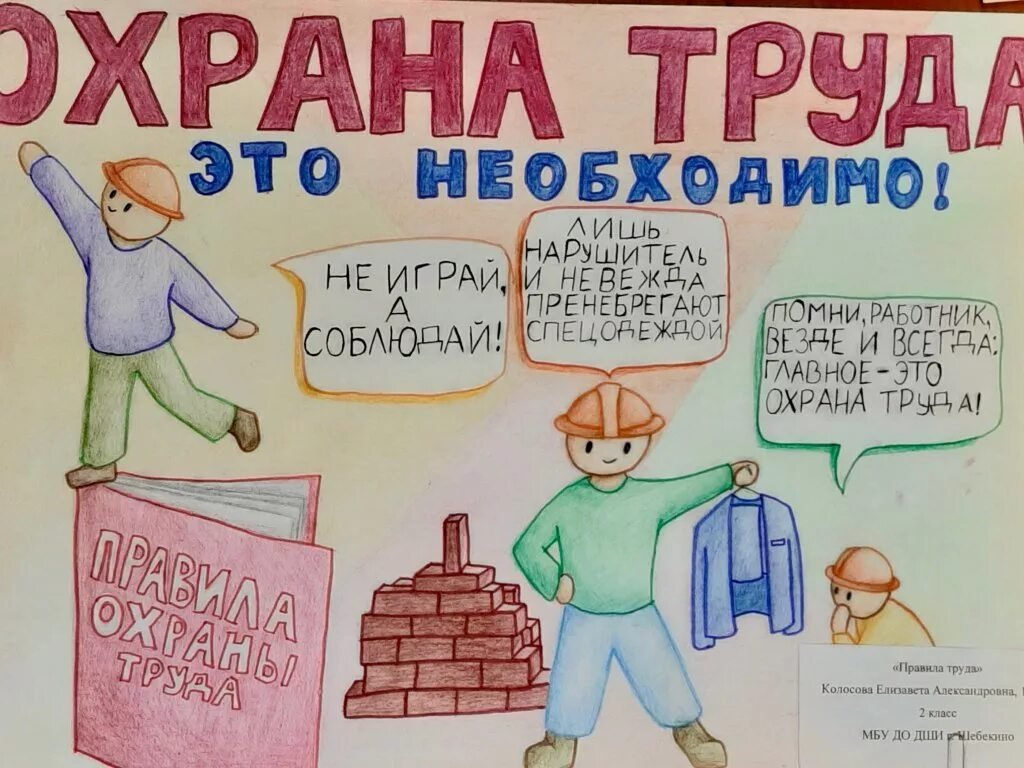 ОХРАНА ТРУДА
ЭТО НЕОБХОДИМО!
НЕ ИГРАЙ,
А
СОБЛЮДАЙ!
ЛИШЬ
НАРУШИТЕЛЬ
И НЕВЕЖДА
ПРЕНЕБРЕГАЮТ
СПЕЦОДЕЖДОЙ
ПОМНИ, РАБОТНИК,
ВЕЗДЕ И ВСЕГДА:
ГЛАВНОЕ-ЭТО
ОХРАНА ТРУДА!
ПРАВИЛА
ОХРАНЫ
ТРУДА
«Правила труда»
Колосова Елизавета Александровна,
2 класс
МБУ ДО ДШИ г. Шебекино